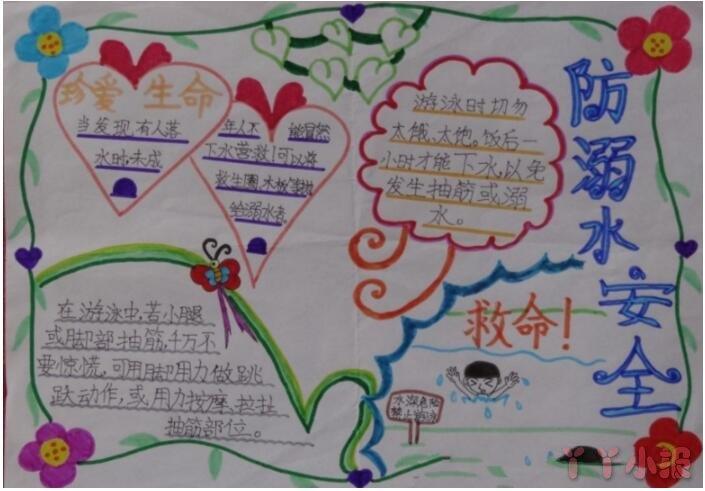 防溺水安全
珍爱生命
当发现有人落
水时未成
年人不能冒然
下水营救!可以将
救生圈、木板等抛
给溺水者。
游泳时切勿
太饿、太饱。饭后一
小时才能下水,以免
发生抽筋或溺
水。
在游泳中,若小腿
或脚部抽筋,千万不
要惊慌,可用脚用力做跳
跃动作,或用力按摩、拉扯
抽筋部位。
救命!
水深危险
禁止游泳
丫丫小报